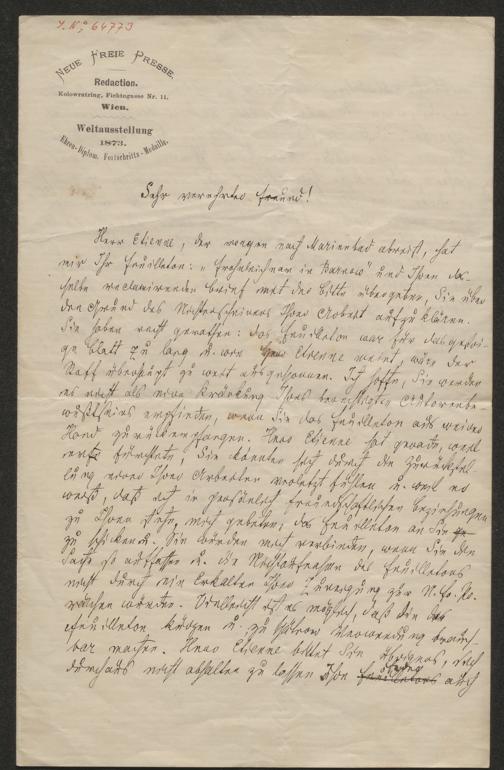 J. N. 64773
NEUE FREIE PRESSE.
Redaction.
Kolowratring, Fichtegasse Nr. 11.
Wien.
Weltausstellung
1873.
Ehren-Diplom. Fortschritts-Medaille.
Sehr verehrter Freund!
Herr Etienne, der morgen nach Marienbad abreist, hat
mir Ihr Feuilleton: „Frohnleichnam in Barnow" und Ihren das-
selbe reclamirenden Brief mit der Bitte übergeben, Sie über
den Grund des Nichterscheinens Ihrer Arbeit aufzuklären.
Sie haben recht gerathen: das Feuilleton war für das
Blatt zu lang u. Etienne meint, wäre der
Stoff überhaupt zu weit ausgesponnen. Ich hoffe, Sie werden
es nicht als eine Kränkung Ihres berechtigten Autoren-
empfinden, wenn Sie das Feuilleton aus meiner
Hand zurückempfangen. Herr Etienne hat gerade, weil
er fürchtete, Sie könnten sich durch die Zurückstel-
lung einer Ihrer Arbeiten verletzt fühlen u. weil er
weiß, daß ich in persönlich freundschaftlichen Beziehungen
zu Ihnen stehe, mich gebeten, das Feuilleton an Sie
zu schicken. Sie würden mich verbinden, wenn Sie die
Sache so auffassen u. die Nichtaufnahme des Feuilletons
nicht durch ein Erkalten Ihrer Zuneigung zur N. Fr. Pr.
rächen würden. Vielleicht ist es möglich, daß Sie das
Feuilleton kürzen u. zu späterer Verwendung brauch-
bar machen. Herr Etienne bittet Sie übrigens, sich
durchaus nicht abhalten zu lassen Ihre auch